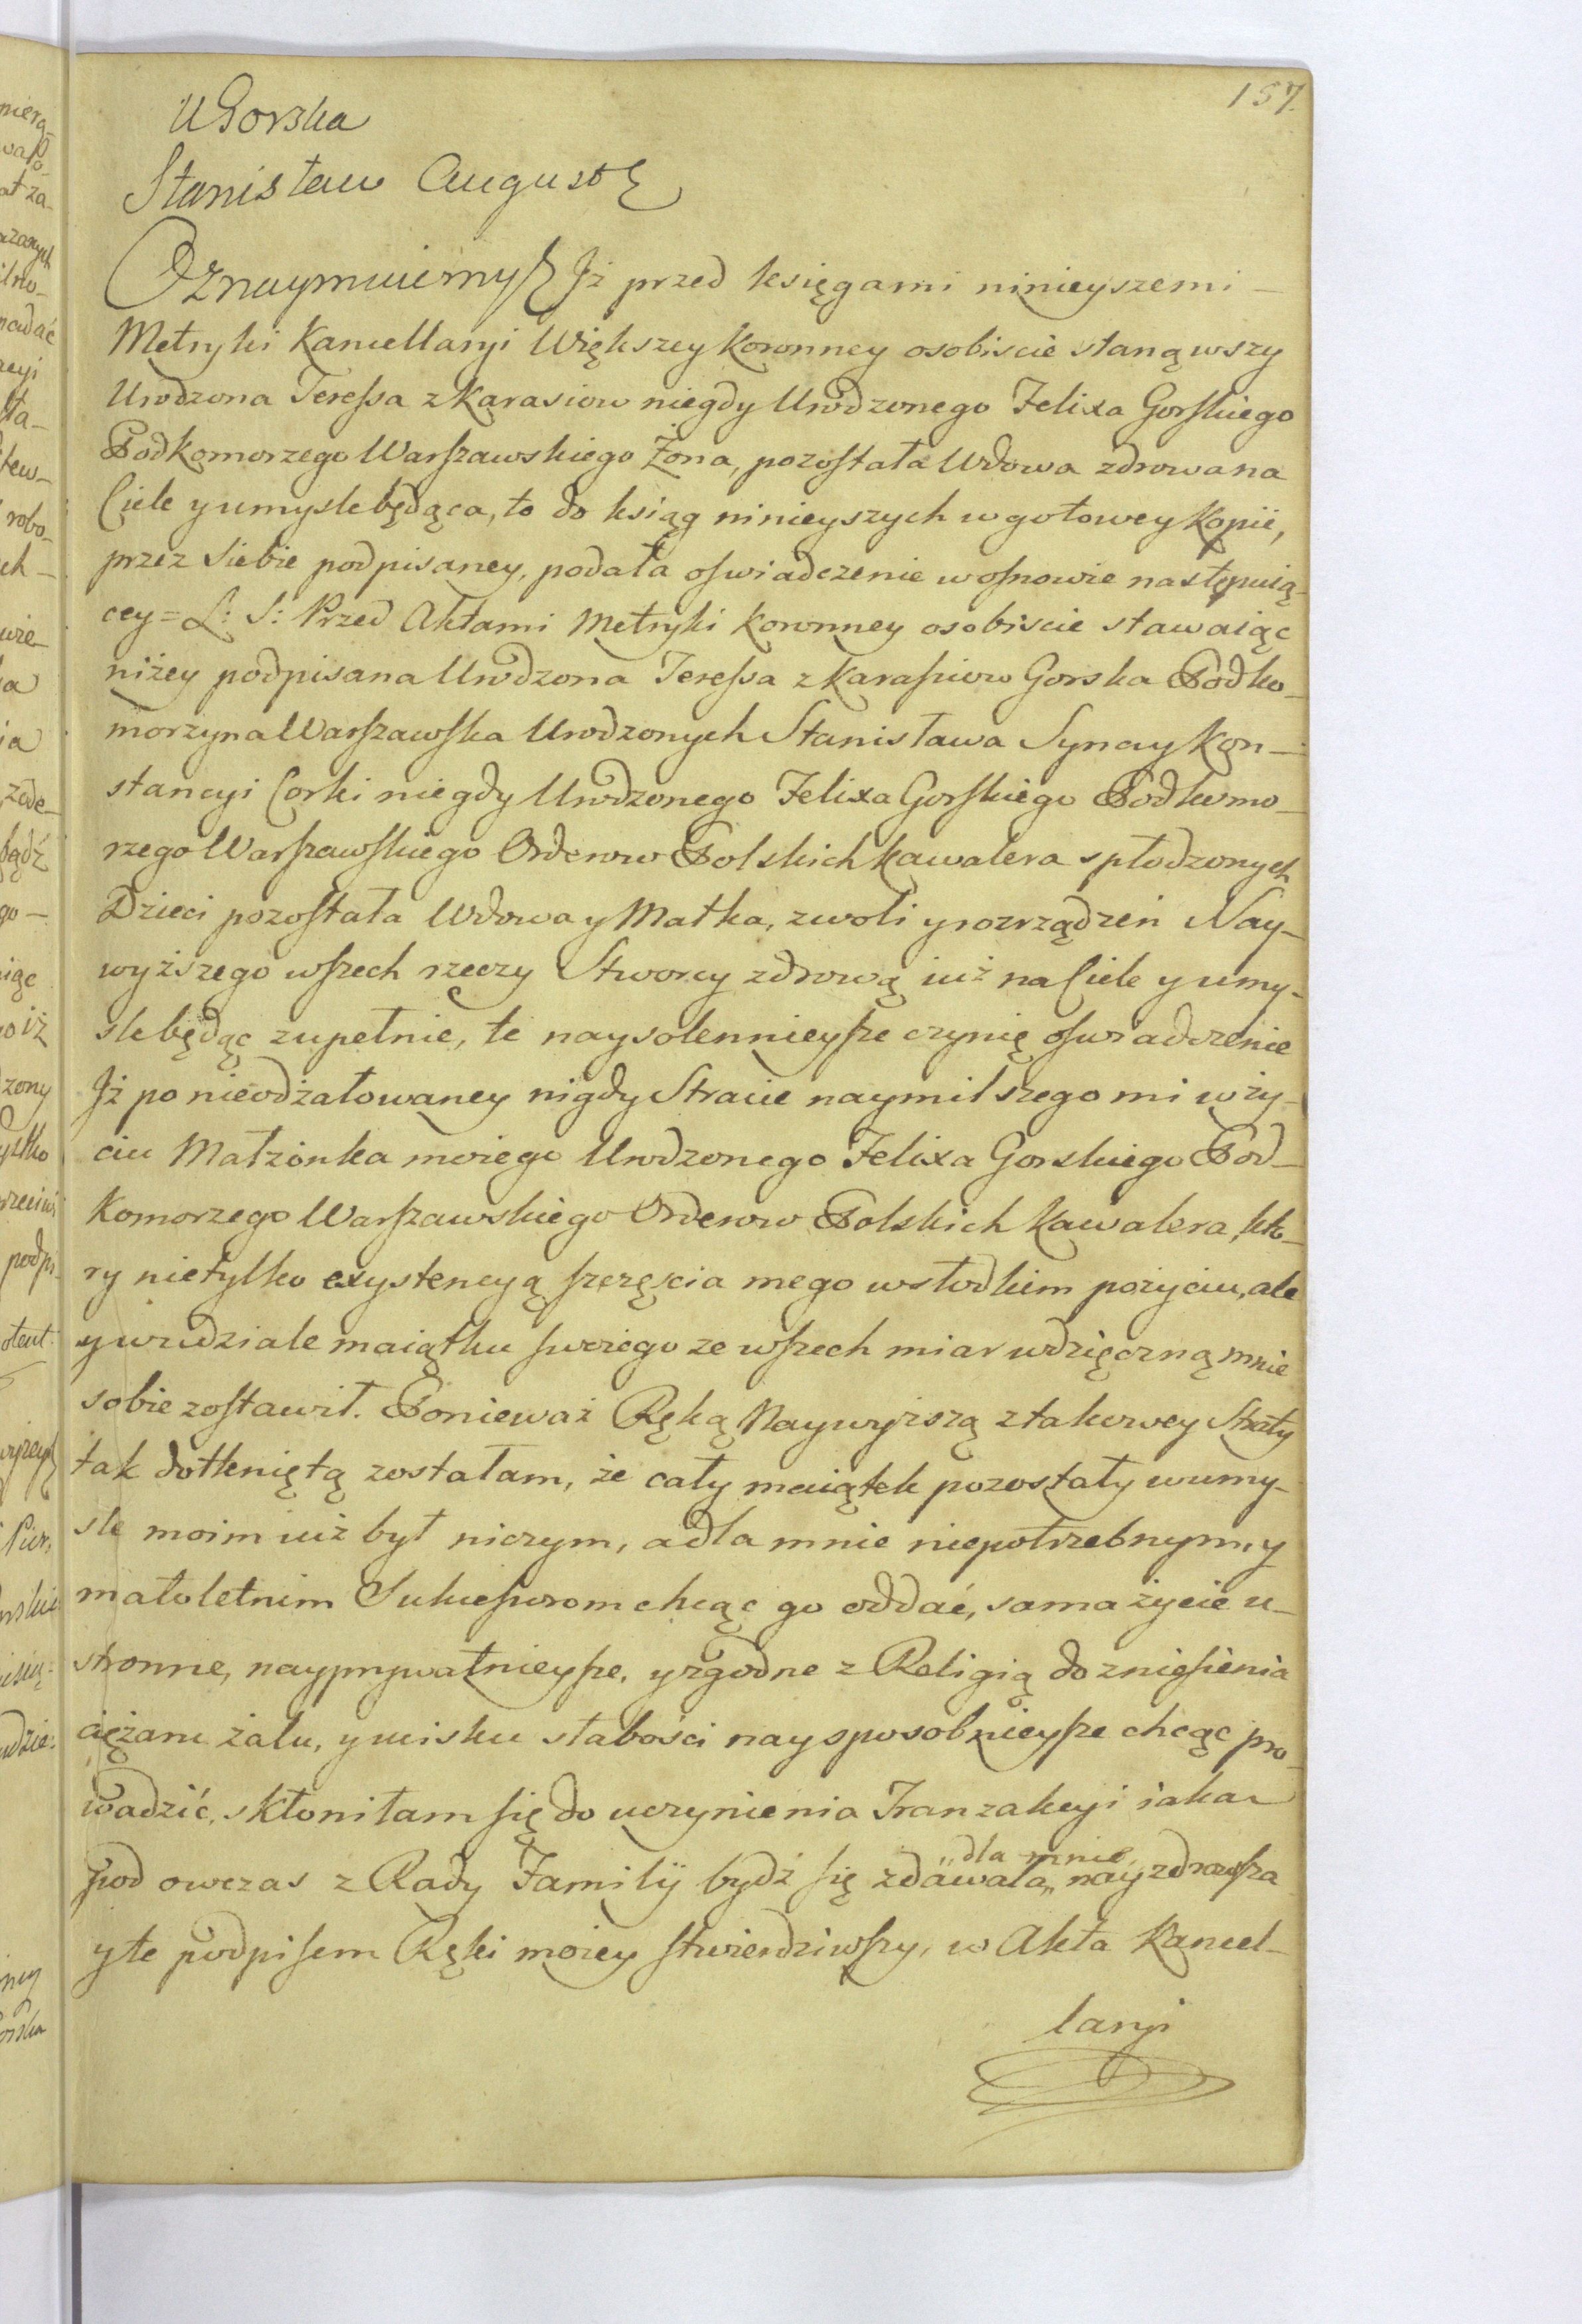 157.
U Gorska
Stanisław August
Oznaymuiemy Jż przed księgami ninieyszemi
Metryki Kancellaryi Większey Koronney osobiscie stanąwszy
Urodzona Teressa z Karasiow niegdy Urodzonego Felixa Gorskiego
Podkomorzego Warszawskiego Żona, pozostała Wdowa zdrowa na
Ciele y umysle będąca, to do ksiąg ninieyszych w gotowey Kopii,
przez Siebie podpisaney, podała oswiadczenie w osnowie następuią-
cey = L: S: Przed Aktami Metryki Koronney osobiscie stawaiąc
niżey podpisana Urodzona Teressa z Karasiow Gorska Podko-
morzyna Warszawska Urodzonych Stanisława Syna y Kon-
stancyi Corki niegdy Urodzonego Felixa Gorskiego Podkomo-
rzego Warszawskiego Orderow Polskich Kawalera spłodzonych
Dzieci pozostała Wdowa y Matka, z woli y rozrządzeń Nay-
wyższego wszech rzeczy Stworcy zdrową iuż na Ciele y umy-
sle będąc zupełnie, te naysolennieysze czynię oswiadczenie
Jż po nieodżałowaney nigdy Stracie naymilszego mi w ży-
ciu Małżonka moiego Urodzonego Felixa Gorskiego Pod-
Komorzego Warszawskiego Orderow Polskich Kawalera, kto-
ry nietylko exystencyą szczęścia mego w słodkim pożyciu, ale
y w udziale maiątku swoiego ze wszech miar wdzięczną mnie
sobie zostawił. Ponieważ Ręką Naywyższą z takowey Straty
tak dotkniętą zostałam, że cały maiątek pozostały w umy-
sle moim iuż był niczym, a dla mnie niepotrzebnym, y
małoletnim Sukcessorom chcąc go oddać, sama życie u-
stronne, nayprywatnieysze, y zgodne z Religią do zniesienia
ciężaru żalu, y ucisku słabości naysposobnieysze chcąc pro-
wadzić, skłoniłam się do uczynienia Tranzakcyi iaka
pod owczas z Rady Familij bydź się zdawała dla mnie nayzdrowsza
y te podpisem Ręki moiey stwierdziwszy, w Akta Kancel-
laryi